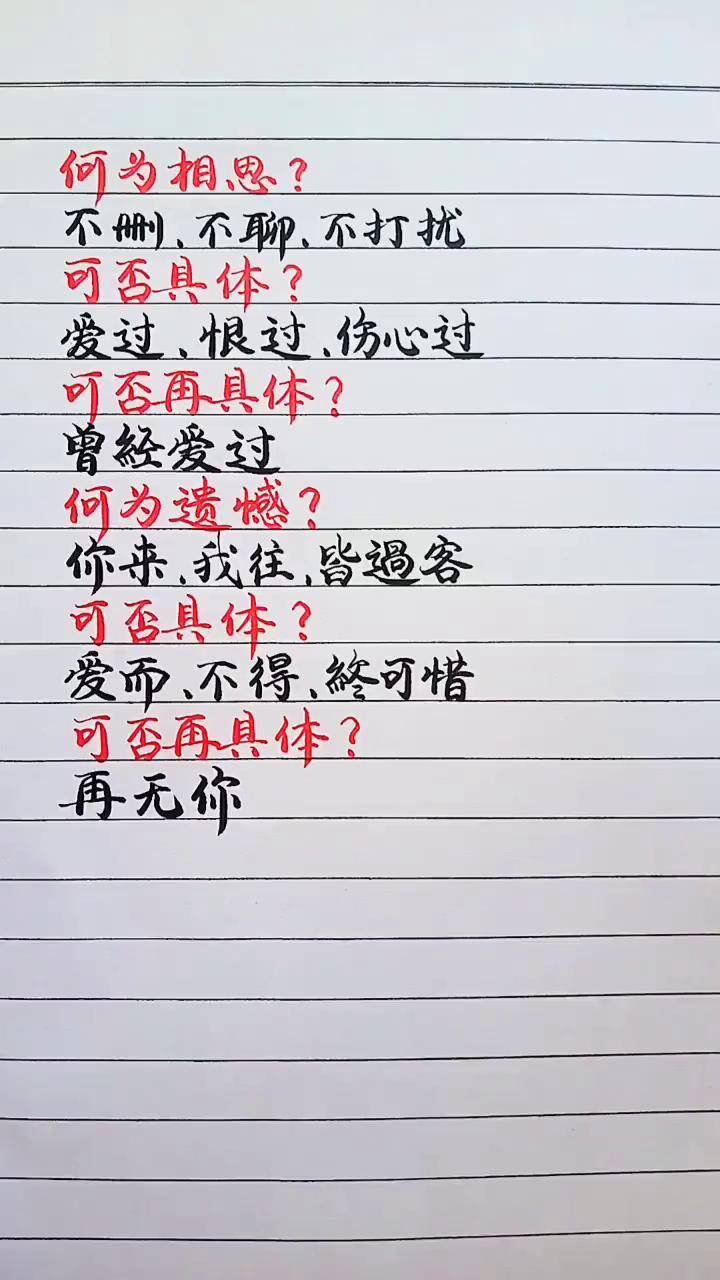 何为相思？
不删、不聊、不打扰
可否具体？
爱过、恨过、伤心过
可否再具体？
曾經爱过
何为遗憾？
你来、我往、皆過客
可否具体？
爱而、不得、終可惜
可否再具体？
再无你